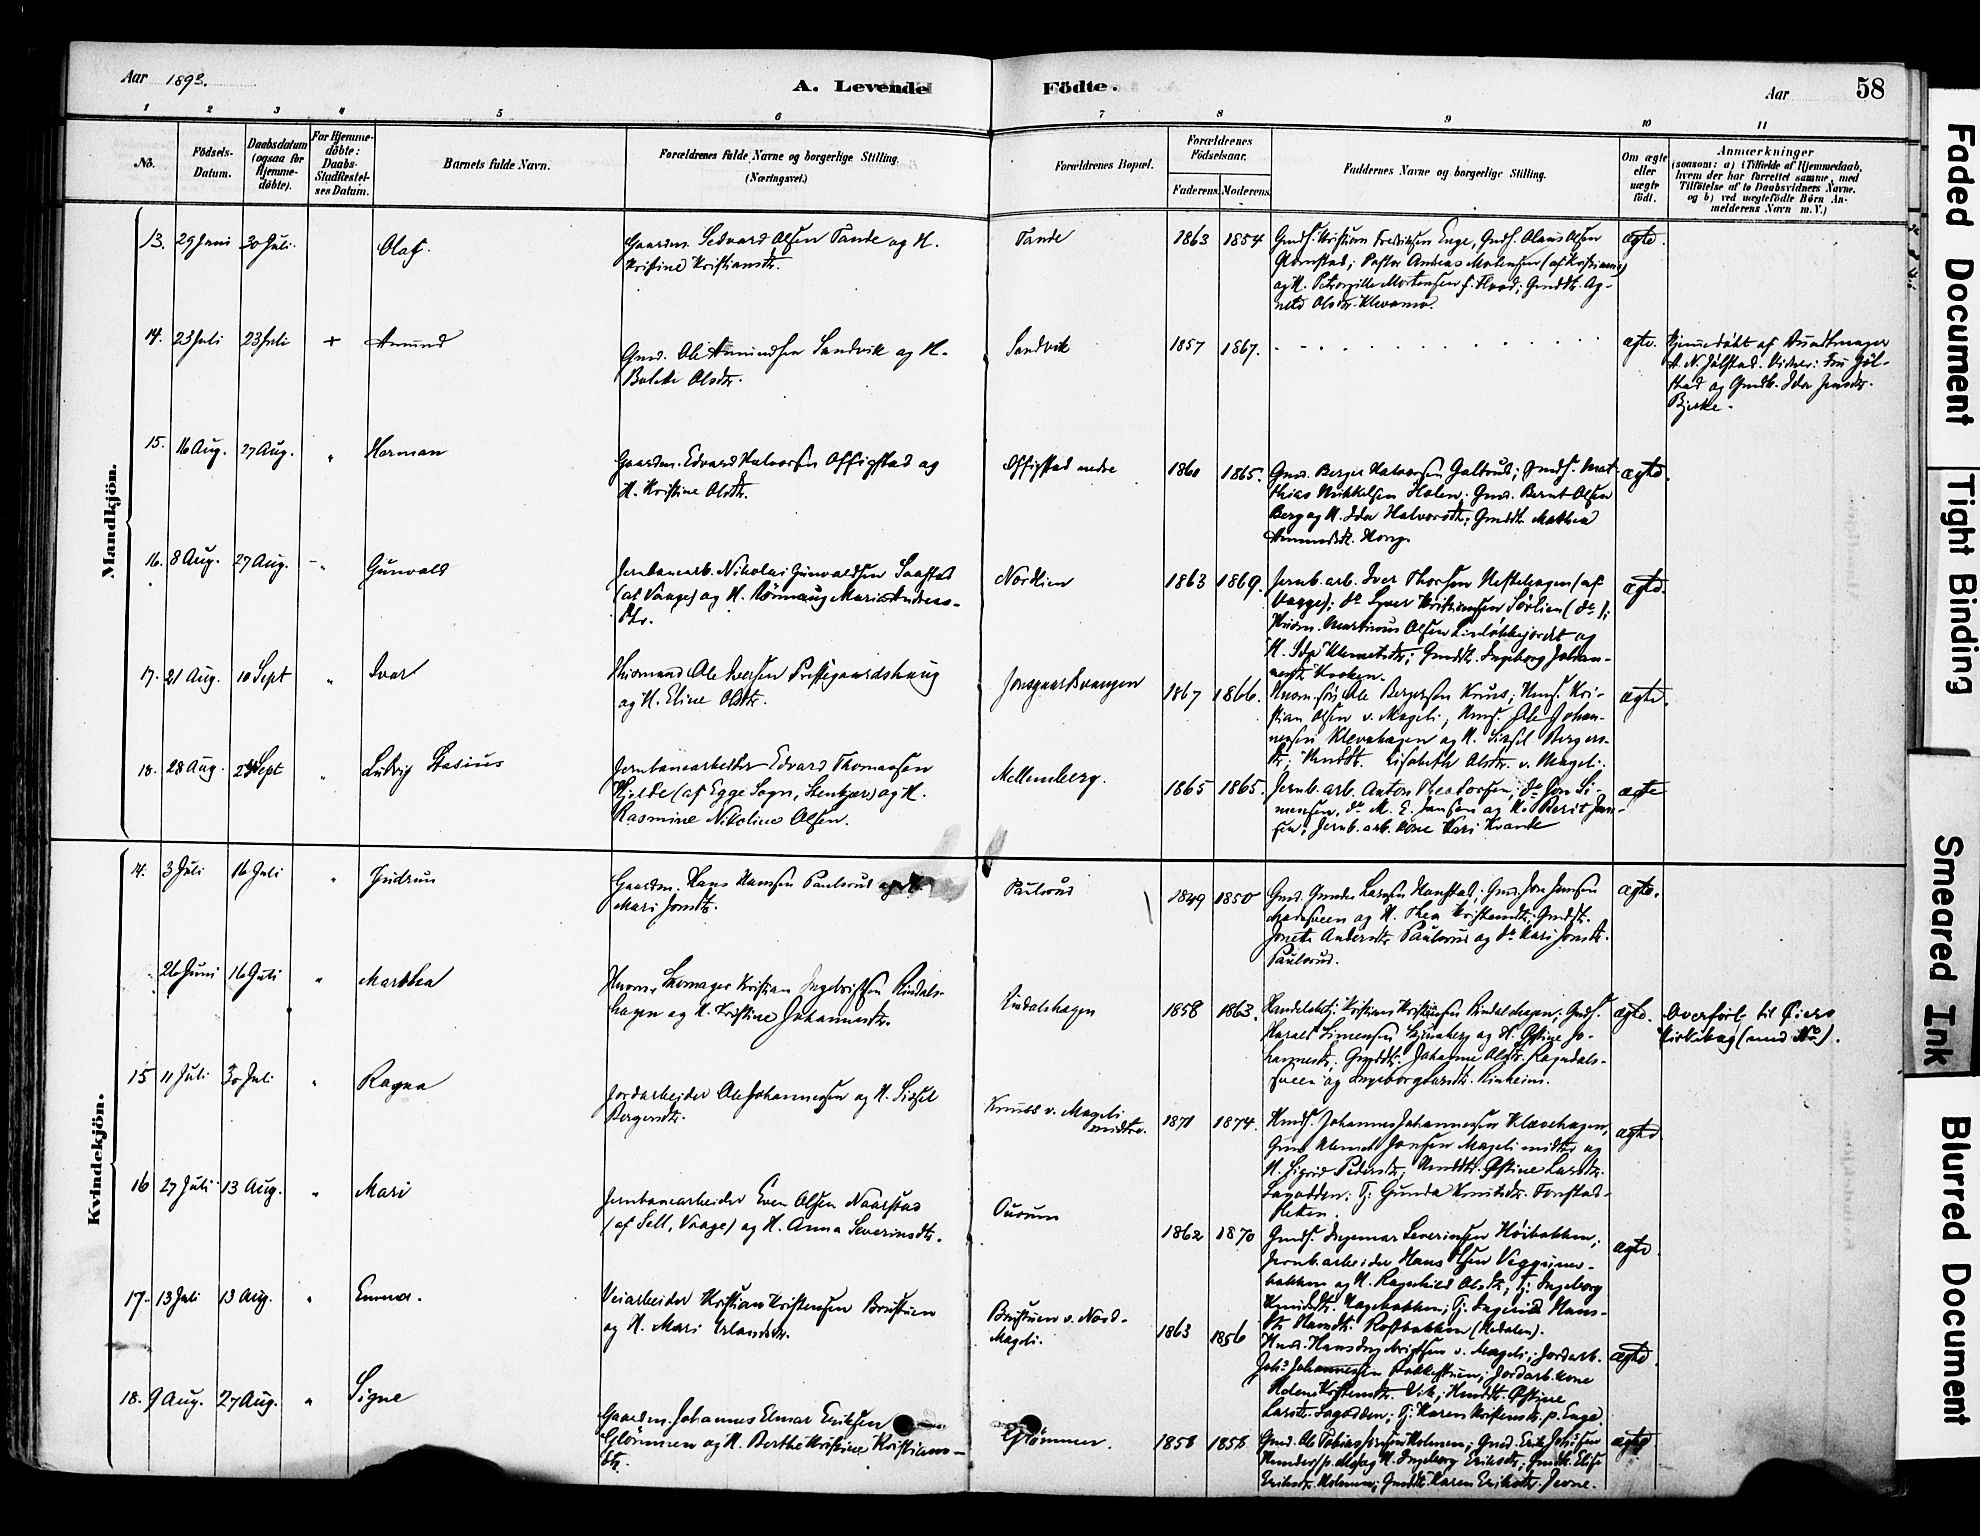 Aar 1893.
A. Levende Födte.
Aar
58
1 2 3 4 5 6 7 8 9 10 11
No.
Födsels-Datum.
Daabsdatum (ogsaa for Hjemme-döbte).
For Hjemme-döbte: Daabs-Stadfæstel-ses Datum.
Barnets fulde Navn.
Forældrenes fulde Navne og borgerlige Stilling.
(Næringsvei.)
Forældrenes Bopæl.
Forældrenes Födselsaar.
Faderens. Moderens.
Faddernes Navne og borgerlige Stilling.
Om ægte eller uægte födt.
Anmærkninger
(saasom: a) i Tilfælde af Hjemmedaab,
hvem der har forrettet samme, med
Tilföielse af to Daabsvidners Navne.
og b) ved uægtefödte Börn An-
melderens Navn m. V.)
Mandkjön.
13. 29 Juni 30 Juli. Olaf.
Gaardm. Sedvard Olsen Tande og H.
Kristine Kristiansdtr.
Tande
1863 1854
Gmds. Kristian Fredriksen Enge, Gmds. Olaus Olsen
Pastor Andreas Mortensen (af Kristiania)
og H. Mortensen f. Gmddtr. Ag-
nete Olsdr.
ægte.
14. 23 Juli 23 Juli + Amund
Gmd. Ole Amundsen Sandvik og H.
Bolette Olsdtr.
Sandvik
1857 1867.
ægte.
Hjemmedöbt af
A. N. Jölstad. Vidner: Fru Jöl-
stad og Gmdk. Ida Jensdtr.
Bjerke.
15. 16 Aug. 27 Aug. " Herman
Gaardm. Edvard Halvorsen Offigstad og
H. Kristine Olsdtr.
Offigstad nedre
1860 1865.
Gmd. Berger Halvorsen Galtrud; Gmds. Mat-
thias Mikkelsen Holen; Gmd. Bernt Olsen
Berg og H. Ida Halvorsdtr; Gmddtr. Mathea
Amundsdtr. Haug.
ægte.
16. 8 Aug. 27 Aug. " Gunvald
Jernbanearb. Nikolai Gunvaldsen Saastad
(af Vaage) og H. Rönnaug Marie Andreas-
dtr.
Nordlien
1863 1869.
Jernb. arb. Iver Thorsen (af
Vaage); do Syver Kristiansen Sörlien (do);
Martinus Olsen og
H. Klemetsdtr; Gmddtr. Ingeborg Johan-
nesdtr.
ægte.
17. 21 Aug. 10 Sept " Ivar
Husmand Ole Iversen Prestgaardshaug
og H. Eline Olsdtr.
Jonsgaardsvangen
1867 1866.
Ole Bergersen Kruss; Hmds. Kri-
stian Olsen v. Mageli, Hmds. Ole Johan-
nesen Klevehagen og H. Sidsel Bergers-
dtr; Hmddtr. Lisabeth Olsdtr. v. Mageli.
ægte.
18. 28 Aug. 24 Sept " Ludvig Stasius
Jernbanearbeider Edvard Thomassen
Hjelde (af Egge Sogn, Stenkjær) og H.
Rasmine Nikoline Olsen.
Mellemberg.
1865 1865.
Jernb. arb. Anton Theodorsen, do Jon Si-
monsen, do M. E. Jensen og H. Berit Jen-
sen; Jernb. arb. kone Kari Kvande
ægte
Kvindekjön.
14. 3 Juli 16 Juli " Gudrun
Gaardm. Hans Hansen Paulsrud og H.
Mari Jonsdtr.
Paulsrud
1849 1850
Gmd. Gunder Larsen Hanstad; Gmd. Jon Jensen
og H. Thea Kristensdtr; Gmddtr.
Jonette Andersdtr Paulsrud og do Kari Jonsdtr.
Paulsrud.
ægte.
26 Juni 16 Juli " Marthea
Husm., Skomager Kristian Ingebrigtsen Rindals-
hagen og H. Kristine Johannesdtr.
Rindalshagen
1858 1863.
Kristian Kristiansen Rindalshagen; Gmds.
Harald Simensen og H. Östine Jo-
hannesdtr; Gmddtr. Johanne Olsdtr. Rogndals-
sveen og Ingeborg Larsdtr. Rinheim.
ægte.
Overfört til Öiers
Kirkebog (med No).
15 11 Juli 30 Juli " Ragna
Jordarbeider Ole Johannessen og H. Sidsel
Bergersdtr.
Kruss v. Mageli
midtre.
1871 1874.
Hmds. Johannes Johannessen Klævehagen;
Gmd. Klemet Jonsen Mageli midtre og
H. Sigrid Pedersdtr, Hmddtr. Östine Larsdtr.
Lagodden; Tj. Gunda Knutsdtr. Fonstad-
ægte
16 27 Juli 13 Aug. " Mari
Jernbanearbeider Even Olsen Naarstad
(af Sell, Vaage) og H. Anna Severinsdtr.
Ourum
1862 1870
Gmds. Ingemar Severinsen Höibakken;
Jernb. arbeider Hans Olsen Veggum-
bakken og H. Ragnhild Olsdtr; Tj. Ingeborg
Knudsdtr. Hagebakken; Tj. Ingerid Hans-
dtr. Rostbakken (Hedalen).
ægte
17. 13 Juli 13 Aug. " Emma.
Veiarbeider Kristian Kristensen Brustuen
og H. Mari Erlandsdtr.
Brustuen v. Nord-
Mageli.
1863 1856
Hmd. Hans Ingebrigtsen v. Mageli; Jordarb.
Johs Johannessen Bakkestuen; Jordarb. kone
Helene Kristensdtr. Hmddtr. Östine
Larsdtr. Lagodden; Tj. Karen Kristensdtr. p. Enge.
ægte.
18. 9 Aug. 27 Aug. " Signe
Gaardm. Johannes Elmar Eriksen
Glömmen og H. Berthe Kristine Kristians-
dtr.
Glömmen.
1858 1858
Gmd. Ole Tobiassen Holmen; Gmd. Erik Johnsen
og H. Ingeborg Eriksdtr; Gmdk. Elise
Eriksdtr Holmen; Gmddtr. Karen Eriksdtr.
ægte
Faded Document
Tight Binding
Smeared Ink
Blurred Document